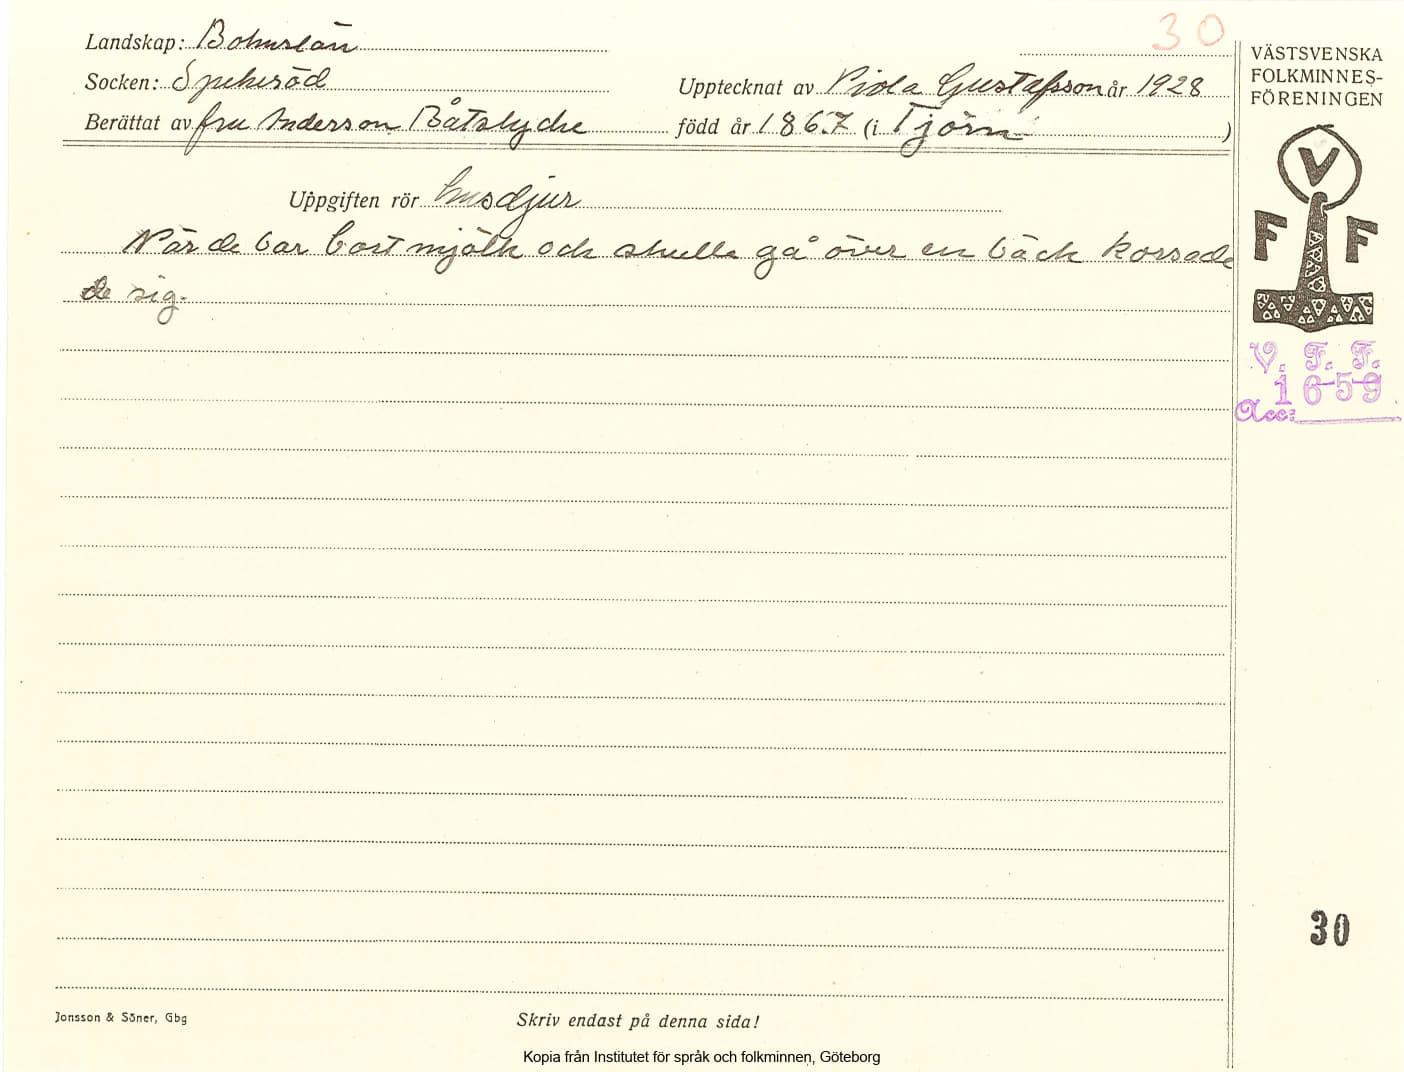 30
Landskap: Bohuslän
Socken: Spekeröd
Upptecknat av Viola Gustafsson år 1928
Berättat av fru Anderson Båtslycke född år 1867 (i Tjörn )
Uppgiften rör husdjur
När de bar bort mjölk och skulle gå över en bäck korsade
de sig.
VÄSTSVENSKA
FOLKMINNES-
FÖRENINGEN
V
F F
V. F. F.
1659
Acc:
30
Jonsson & Söner, Gbg
Skriv endast på denna sida!
Kopia från Institutet för språk och folkminnen, Göteborg